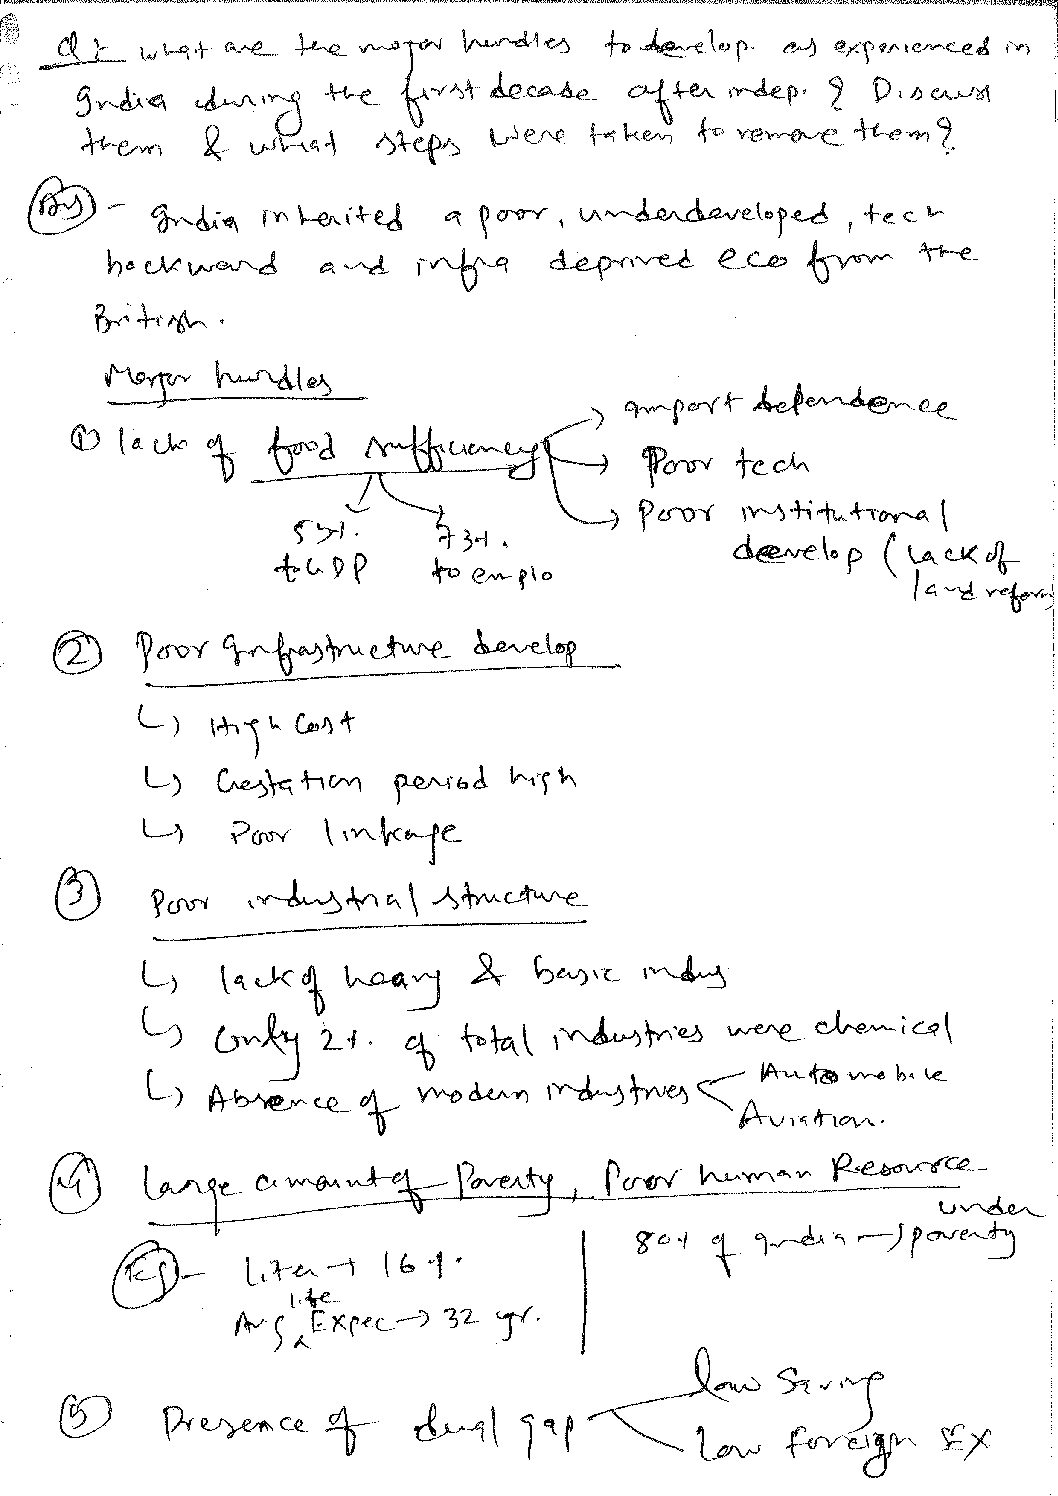 Q1 what are the major hurdles to develop. as experienced in
India during the first decade after indep. ? Discuss
them & what steps were taken to remove them?
Ans - India inherited a poor, underdeveloped, tech
backward and infra deprived eco from the
British.
Major hurdles
① lack of food sufficiency
→ import dependence
→ Poor tech
→ Poor institutional
develop (lack of
land reform)
to GDP
73%.
to emplo
② Poor Infrastructure develop
↳ High Cost
↳ Gestation period high
↳ Poor linkage
③ Poor industrial structure
↳ lack of heavy & basic indus
↳ Only 2%. of total industries were chemical
↳ Absence of modern industries
Automobile
Aviation.
④ Large amount of Poverty, Poor human Resource
Eg - Liter → 16%.
Avg life Expec → 32 yr.
80% of India → under poverty
⑤ Presence of dual gap
low Saving
low foreign EX